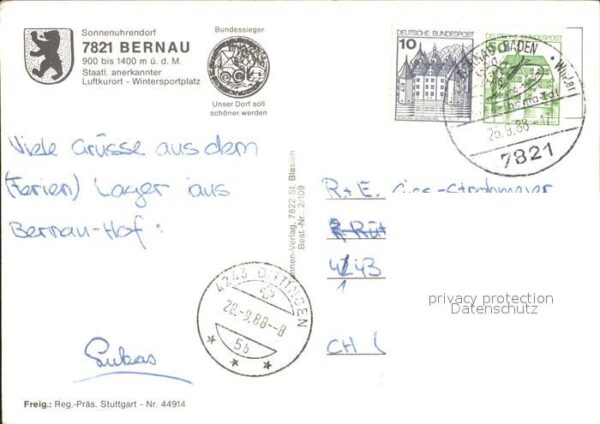 Sonnenuhrendorf
7821 BERNAU
900 bis 1400 m ü. d. M.
Staatl. anerkannter
Luftkurort - Wintersportplatz
Bundessieger
Unser Dorf soll
schöner werden
DEUTSCHE BUNDESPOST
10
DEUTSCHE BUNDESPOST
BADEN
26.9.88
7821
Viele Grüsse aus dem
(Ferien) Lager aus
Bernau-Hof:
Lukas
Verlag, 7822 St. Blasien
Best.-Nr. 2/109
4243 DITTINGEN
28.-9.88--8
5b
R+E.
4143
CH
privacy protection
Datenschutz
Freig.: Reg.-Präs. Stuttgart - Nr. 44914